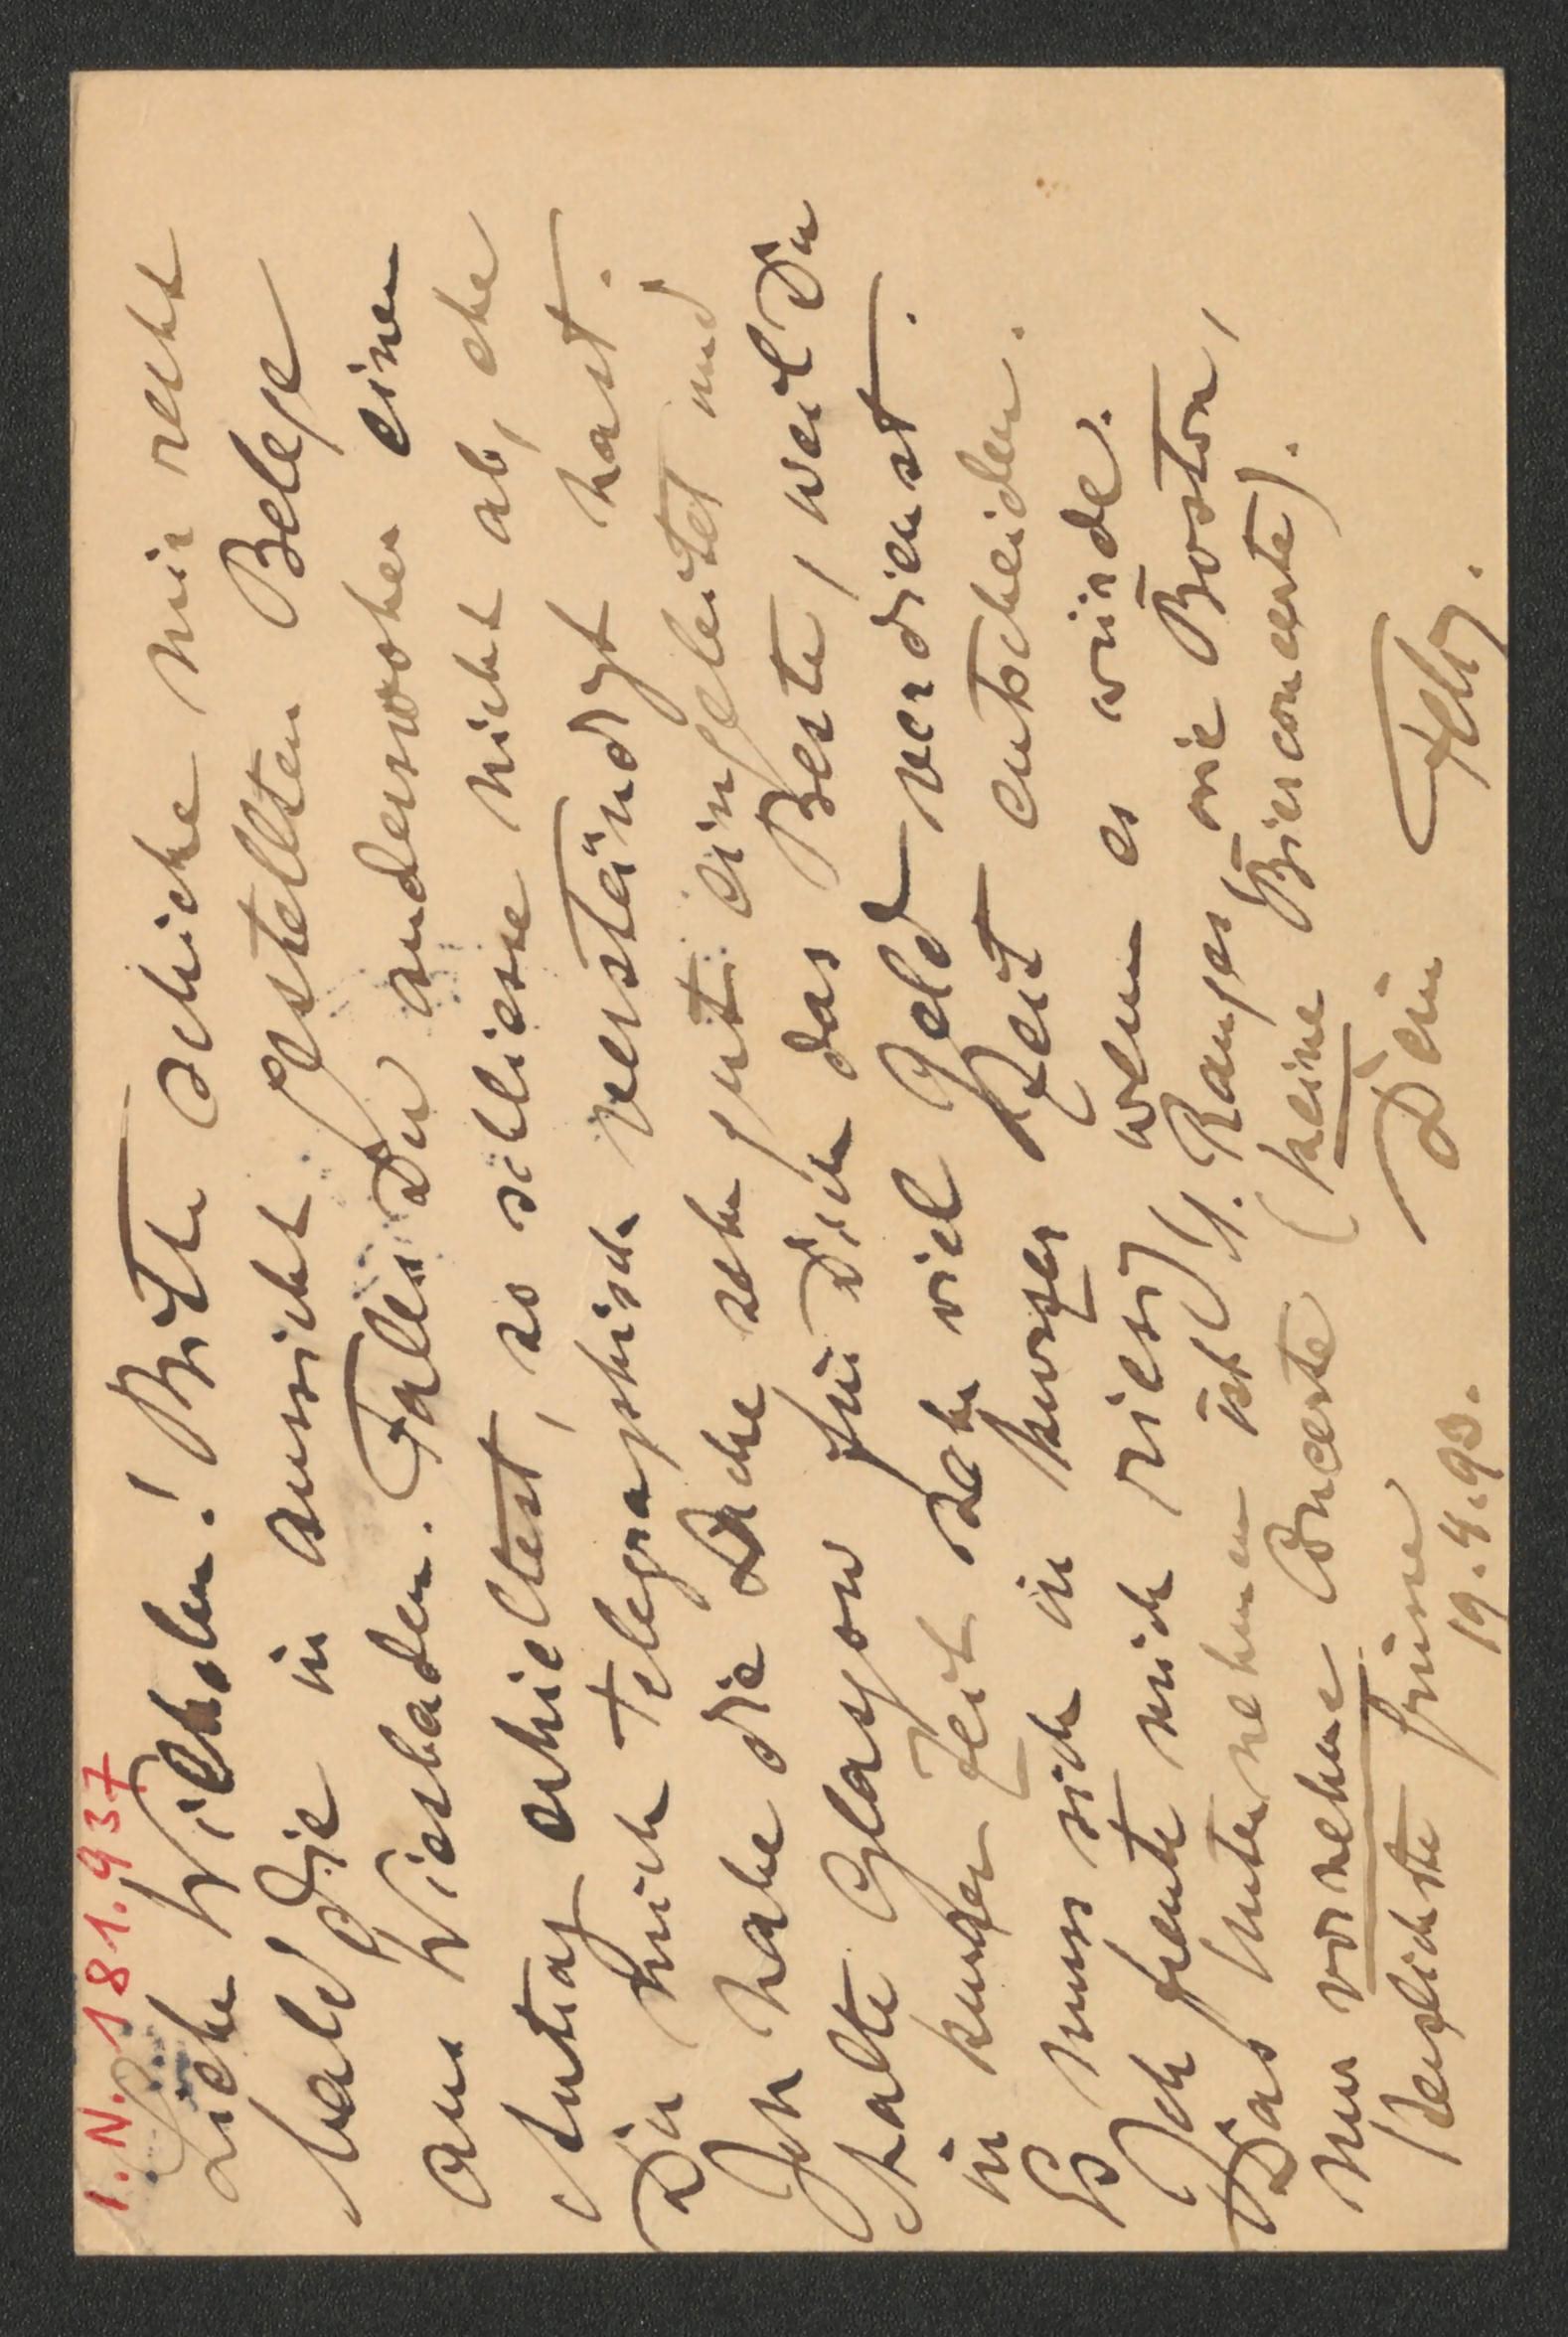 I. N. 181.937
Lieber Wilhelm! Bitte schicke mir recht
bald die in aussicht gestellten Belege
aus Wiesbaden. Falls Du anderswoher einen
Antrag erhieltest, so schliesse nicht ab, ehe
Du mich telegraphisch verständigt hast.
Ich habe die Sache sehr gut eingeleitet und
halte Glasgow für Dich das Beste, weil Du
in kurzer Zeit sehr viel Geld verdienst.
Es muss sich in kurzer Zeit entscheiden.
Ich freute mich riesig wenn es würde.
Das Unternehmen ist I. Ranges wie Boston,
nur vornehme Concerte (keine Bierconcerte).
Herzlichste Grüsse Dein Felix.
19.4.93.